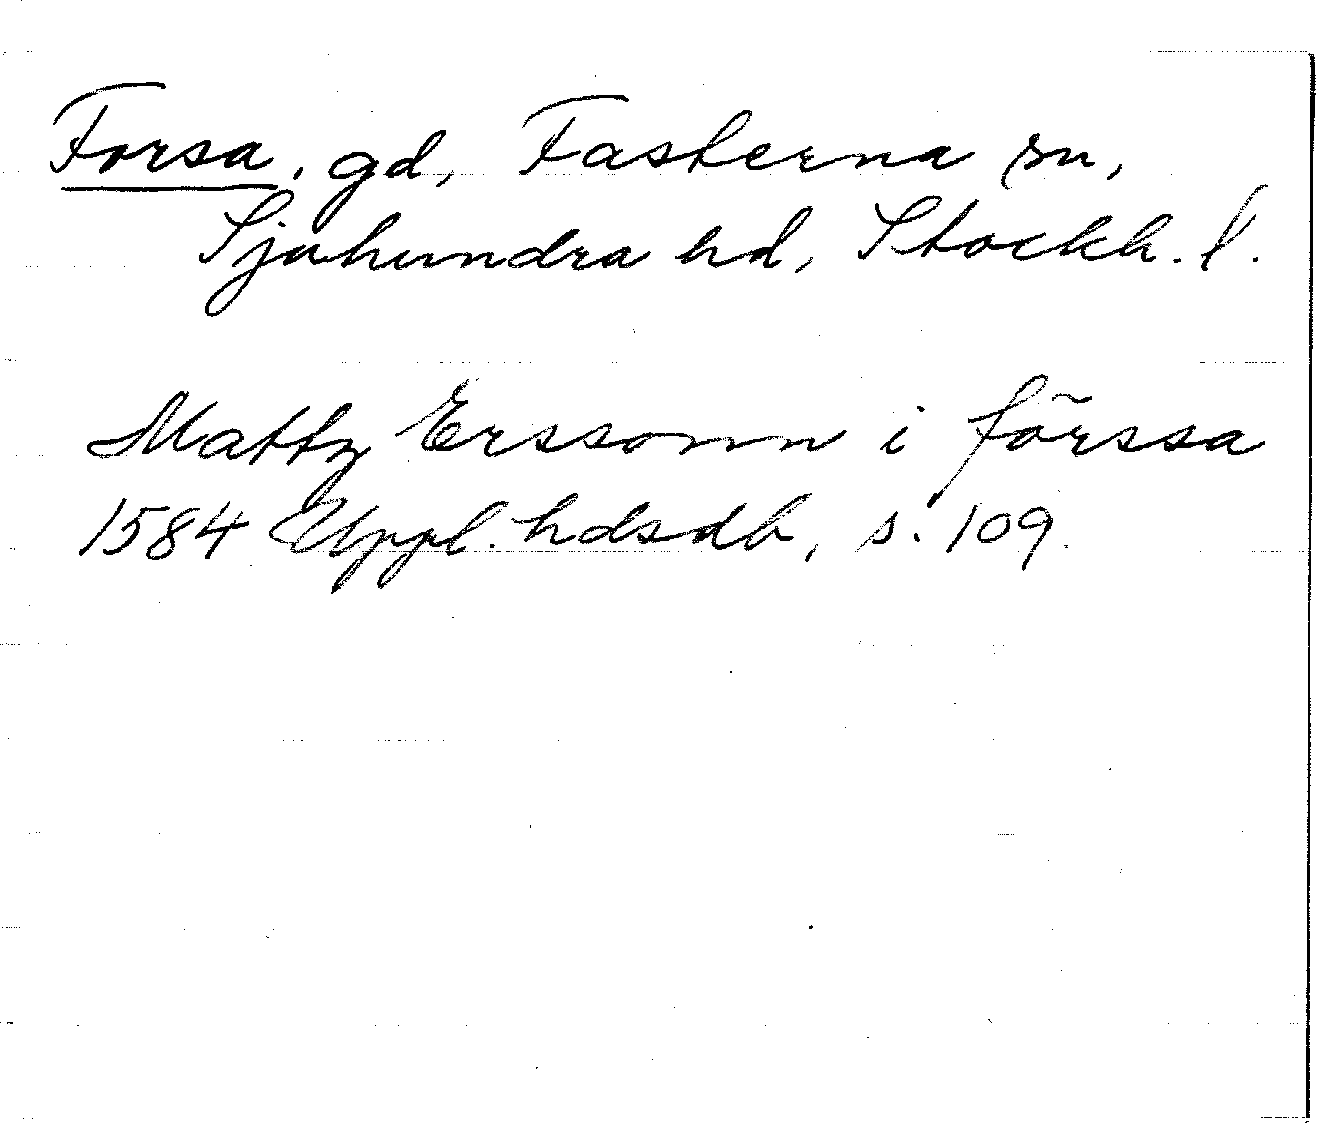 Forsa, gd, Fasterna sn,
Sjuhundra hd, Stockh. l.
Mattz Erssonn i fõrssa
1584 Uppl. hdsdb, s. 109.